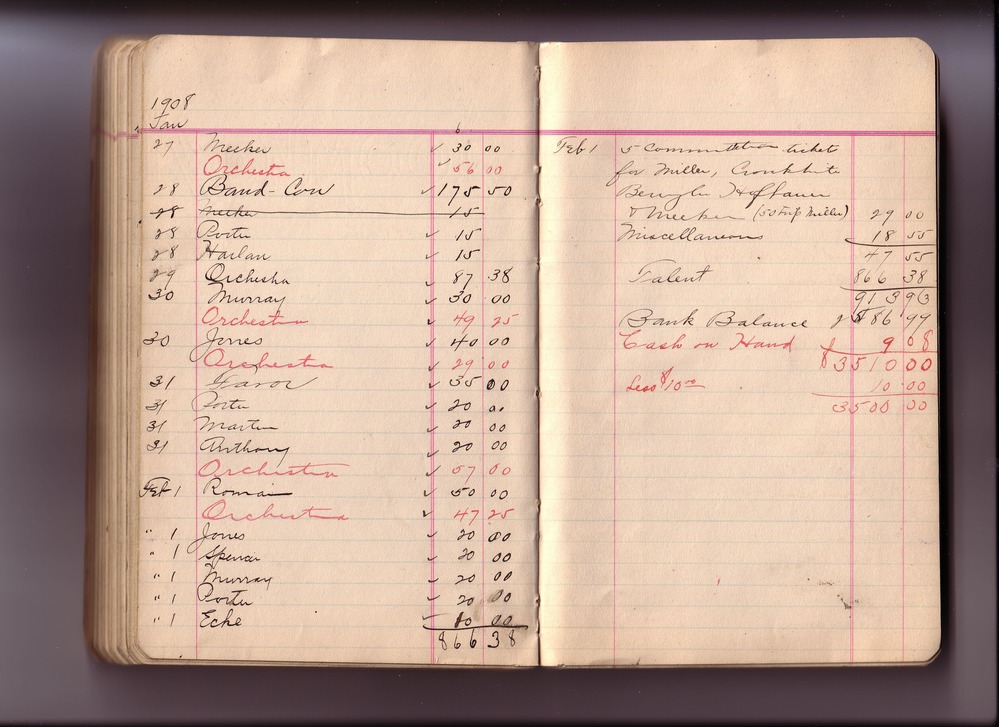 1908
Jan
27 Meeker ✓ 30 00
Orchestra ✓ 56 00
28 Band-Con ✓ 175 50
28 Meeker 15
28 Porter ✓ 15
28 Harlan ✓ 15
29 Orchestra ✓ 87 38
30 Murray ✓ 30 00
Orchestra ✓ 49 25
30 Jones ✓ 40 00
Orchestra ✓ 29 00
31 ✓ 35 00
31 Porter ✓ 20 00
31 Martin ✓ 20 00
31 Anthony ✓ 20 00
Orchestra ✓ 57 00
Feb 1 Romain ✓ 50 00
Orchestra ✓ 47 25
" 1 Jones ✓ 20 00
" 1 Spencer ✓ 20 00
" 1 Murray ✓ 20 00
" 1 Porter ✓ 20 00
" 1 Ecke ✓ 10 00
866 38
Feb 1 5 Commutation tickets
for Miller, Cronkhite
& Meeker (50 trip Miller) 29 00
Miscellaneous 18 55
47 55
Talent 866 38
913 93
Bank Balance 86 99
Cash on Hand 9 08
$3510 00
Less $10.00 10 00
3500 00